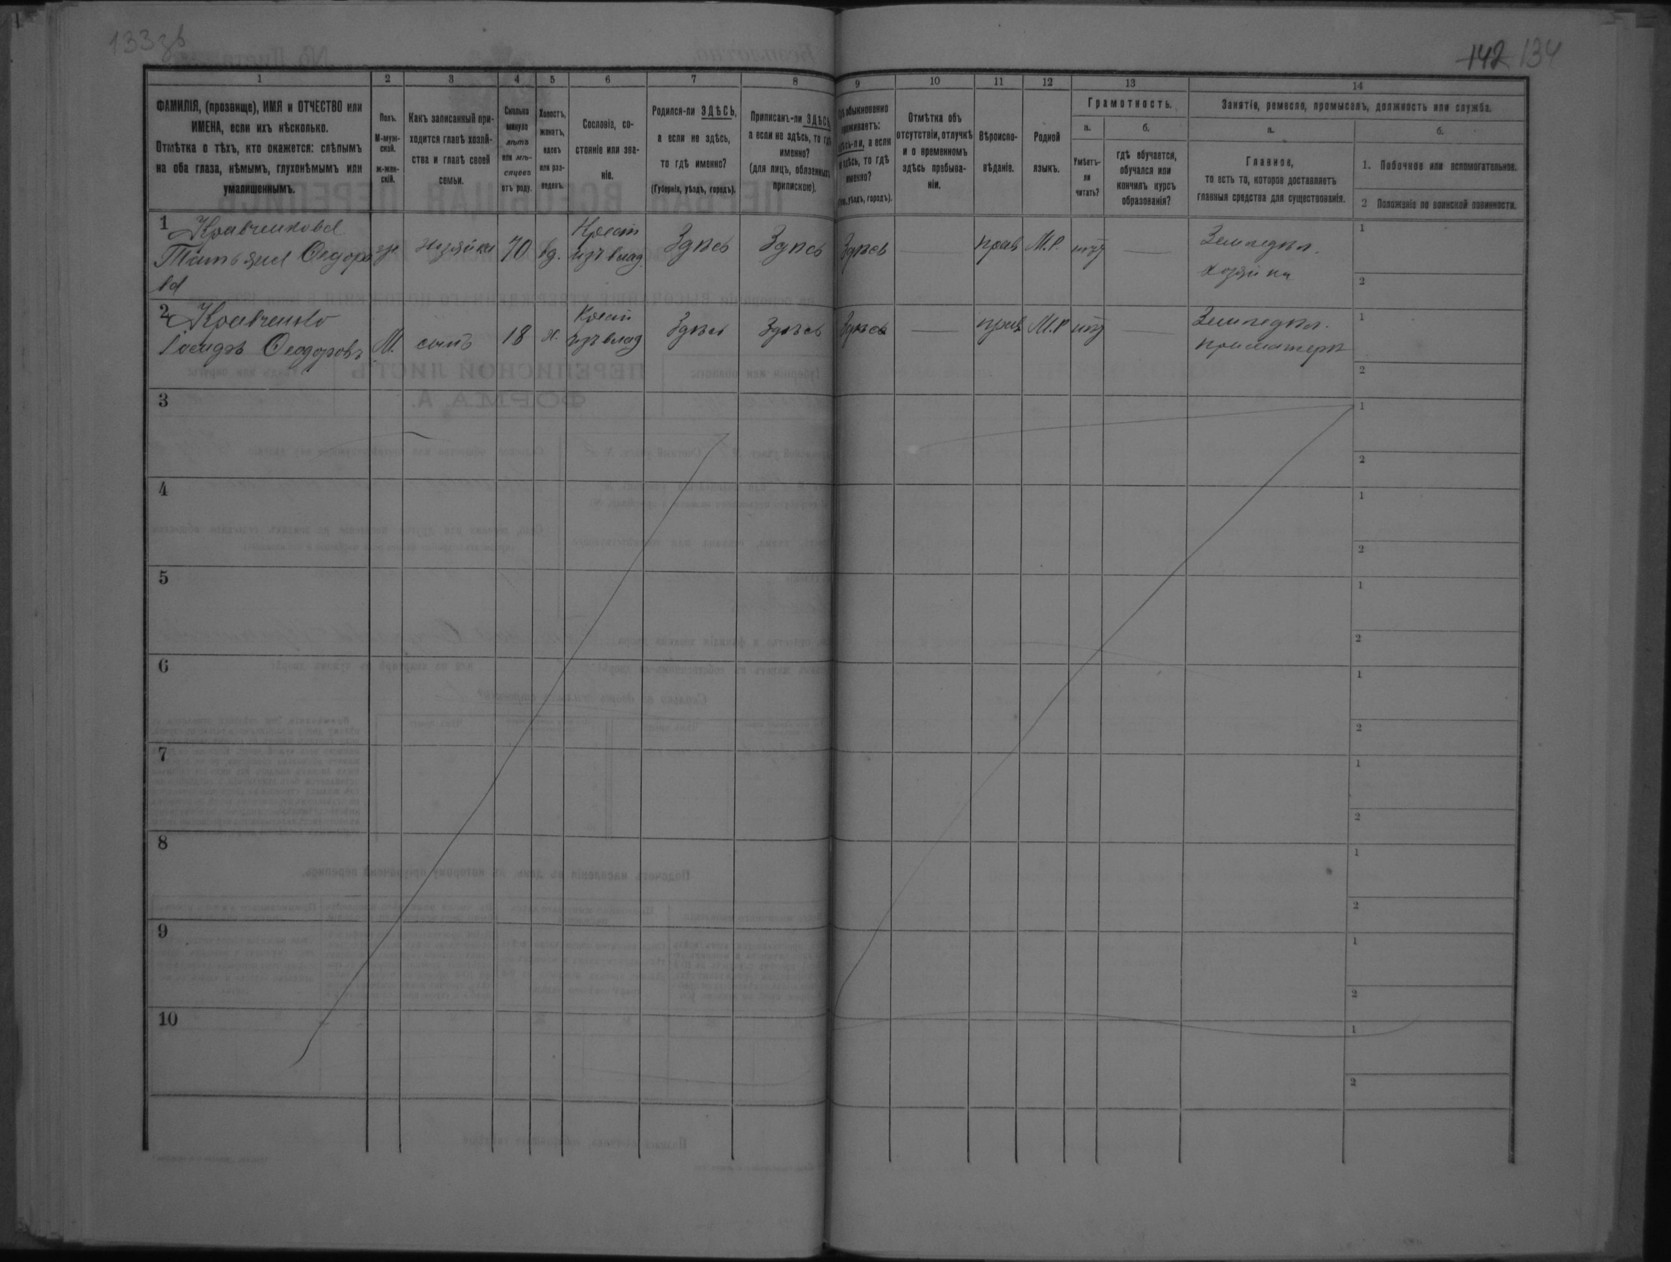 133зв
142 134
1
2
3
4
5
6
7
8
9
10
11
12
13
14
ФАМИЛІЯ, (прозвище), ИМЯ и ОТЧЕСТВО или
ИМЕНА, если ихъ нѣсколько.
Отмѣтка о тѣхъ, кто окажется: слѣпымъ
на оба глаза, нѣмымъ, глухонѣмымъ или
умалишеннымъ.
Полъ.
М-муж-
ской.
ж-жен-
скій.
Какъ записанный при-
ходится главѣ хозяй-
ства и главѣ своей
семьи.
Сколько
минуло
лѣтъ
или мѣ-
сяцевъ
отъ роду.
Холостъ,
женатъ,
вдовъ
или раз-
веденъ.
Сословіе, со-
стояніе или зва-
ніе.
Родился-ли ЗДѢСЬ,
а если не здѣсь,
то гдѣ именно?
(Губернія, уѣздъ, городъ).
Приписанъ-ли ЗДѢСЬ,
а если не здѣсь, то гдѣ
именно?
(для лицъ, обязанныхъ
припискою).
Гдѣ обыкновенно
проживаетъ:
здѣсь-ли, а если
не здѣсь, то гдѣ
именно?
(Губ., уѣздъ, городъ).
Отмѣтка объ
отсутствіи, отлучкѣ
и о временномъ
здѣсь пребыва-
ніи.
Вѣроиспо-
вѣданіе.
Родной
языкъ.
Грамотность.
а.
Умѣетъ-
ли
читать?
б.
гдѣ обучается,
обучался или
кончилъ курсъ
образованія?
Занятіе, ремесло, промыселъ, должность или служба.
а.
Главное,
то есть то, которое доставляетъ
главныя средства для существованія.
б.
1. Побочное или вспомогательное.
2 Положеніе по воинской повинности.
1 Кравченкова
Татьяна Федоро
ва
ж
хозяйка
70
вд.
Крест
изъ влад.
Здѣсь
Здѣсь
Здѣсь
—
прав
М.Р.
нѣт
—
Земледѣл.
хозяйка
1
2
2 Кравченко
Федоровъ
М.
сынъ
18
х.
Крест
изъ влад
Здѣсь
Здѣсь
Здѣсь
—
прав
М.Р
нѣт
—
Земледѣл.
при матери
1
2
3
1
2
4
1
2
5
1
2
6
1
2
7
1
2
8
1
2
9
1
2
10
1
2